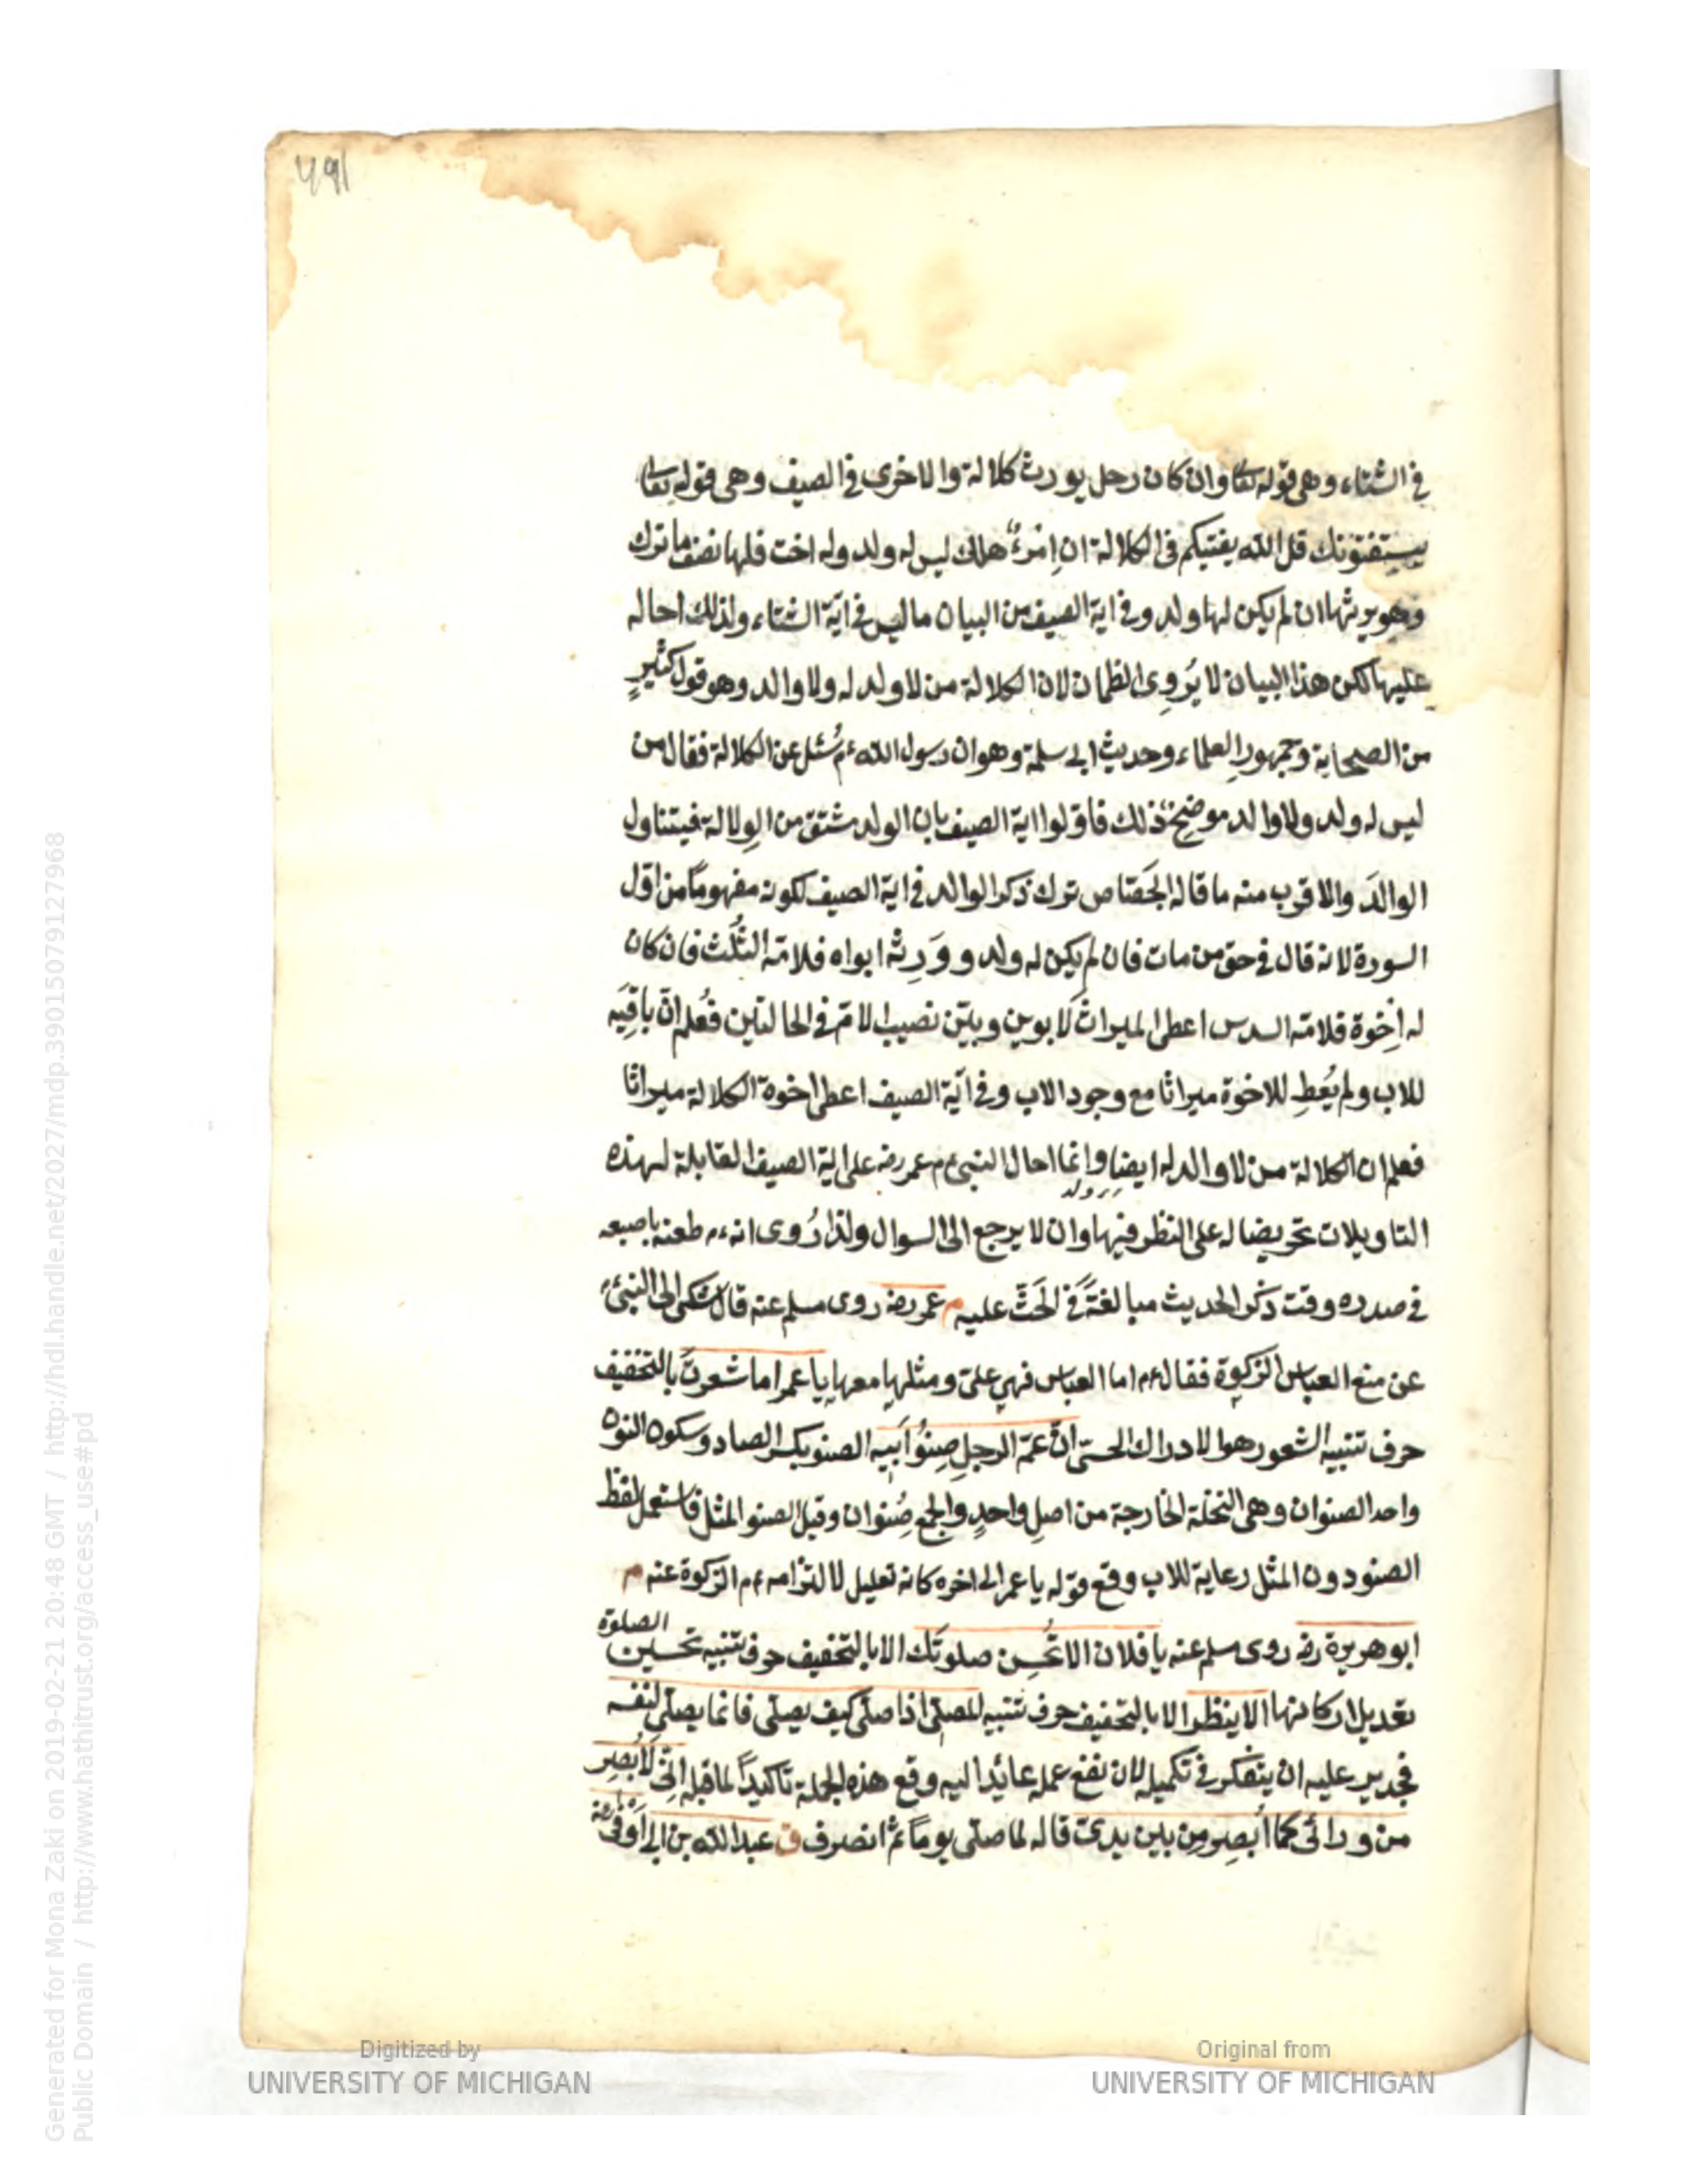 491
في الشتاء وهى قوله تعا وان كان رجل يورث كلالة والاخرى في الصيف وهى قوله تعا
يستفتونك قل الله يفتيكم في الكلالة ان اِمْرءٌ هلك ليس له ولد وله اخت فلها نصف ما ترك
وهو يرثها ان لم يكن لها ولد وفي اية الصيف من البيان ما ليس في اية الشتاء ولذلك احاله
عليها لكن هذا البيان لا يُروِى الظمان لان الكلالة من لا ولد له ولا والد وهو قول كثيرٍ
من الصحابة وجمهورِ العلماء وحديث ابى سلمة وهو ان رسول الله عم سُئل عن الكلالة فقال من
ليس له ولد ولا والد موضحٌ ذلك فاوّلوا اية الصيف بان الولد مشتق من الوِلالة فيتناول
الوالدَ والاقرب منه ما قاله الجَصّاص ترك ذكر الوالد في اية الصيف لكونه مفهوماً من اوّل
السورة لانه قال في حق من مات فان لم يكن له ولد ووَرِثه ابواه فلامّه الثُلُث فان كان
له اِخوة فلامّه السدس اعطى الميراثَ لابوين وبيّن نصيب الامّ في الحالتين فعُلم انّ باقِيَه
للاب ولم يُعطِ للاخوة ميراثا مع وجود الاب وفي اية الصيف اعطى اخوة الكلالة ميراثا
فعلم ان الكلالة من لا والد له ايضا وانما احال النبى عم عمر رضه على اية الصيف القابلة لهذه
التاويلات تحريضا له على النظر فيها وان لا يرجع الى السوال ولذا رُوى انه عم طعنه باصبعه
في صدره وقت ذكر الحديث مبالغةً في الحَثّ عليه م عمر رضه روى مسلم عنه قال شكى الى النبى عم
عن منع العباس الزكوة فقال عم اما العباس فهى علىّ ومثلها معها يا عمر اما شعرتَ بالتخفيف
حرف تنبيه الشعور هو الادراك الحسىّ انّ عمّ الرجلِ صِنوُ ابيه الصنو بكسر الصاد وسكون النون
واحد الصنوان وهى النخلة الخارجة من اصلٍ واحدٍ والجمع صُِنوان وقيل الصنو المثل فاستعمل لفظ
الصنو دون المثل رعاية للاب وقع قوله يا عمر الى اخره كانه تعليل لالتزامه عم الزكوة عنه م
ابو هريرة رضه روى مسلم عنه يا فلان الا تُحسِن صلوتَك الا بالتخفيف حرف تنبيه تحسين الصلوة
تعديل اركانها الا ينظر الا بالتخفيف حرف تنبيه المصلّى اذا صلّى كيف يصلّى فانما يصلّى لنفسه
فجدير عليه ان يتفكر في تكميله لان نفع عمله عائدا اليه وقع هذه الجملة تاكيداً لما قبله انّى لَاُبصِر
من ورائى كما اُبصِر مِن بين يدىّ قاله لما صلّى يوماً ثم انصرف ق عبد الله بن ابى اَوفى رضه
Digitized by
UNIVERSITY OF MICHIGAN
Original from
UNIVERSITY OF MICHIGAN
Generated for Mona Zaki on 2019-02-21 20:48 GMT / http://hdl.handle.net/2027/mdp.39015079127968
Public Domain / http://www.hathitrust.org/access_use#pd